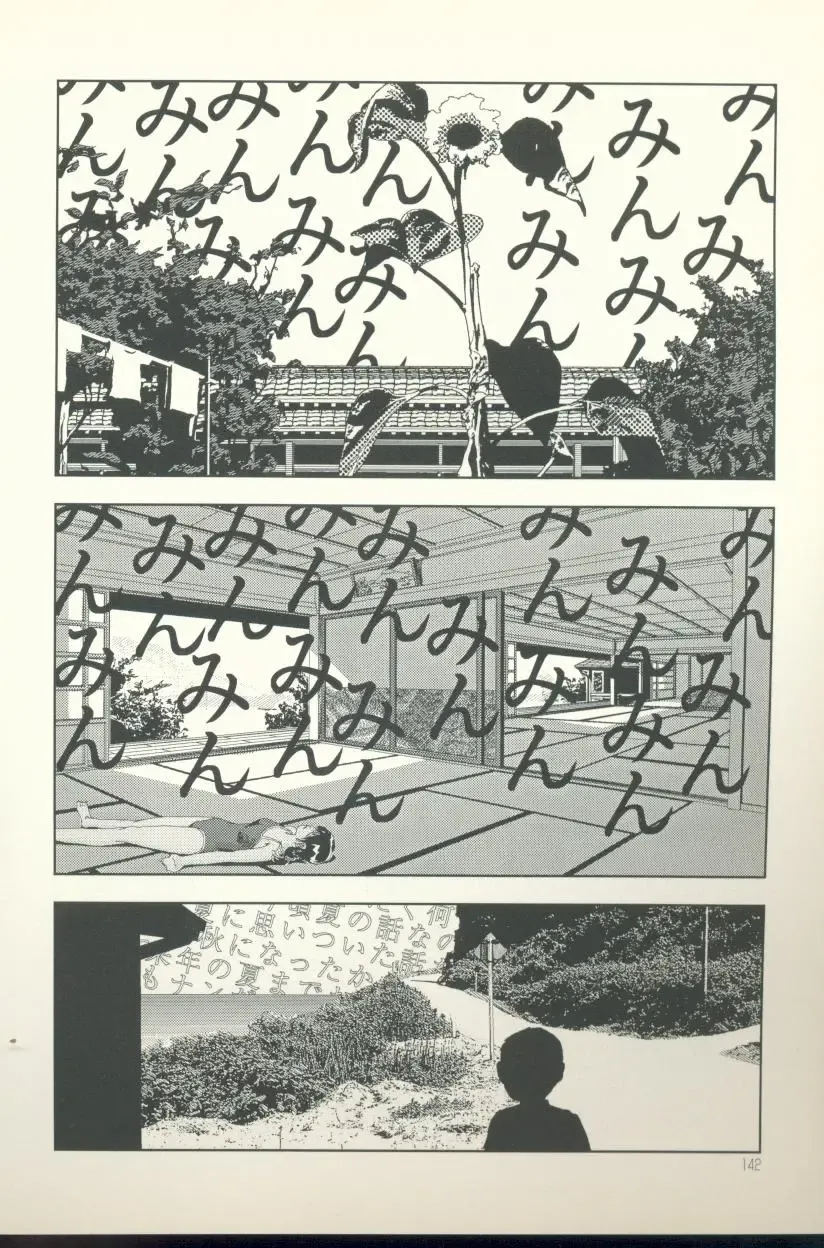 みん
み
みんみん
みみん
んみん
みんみん
みんみ
みん
みんみ
みん
みん
みんみん
みんみん
みん
みんみん
みんみん
みんみん
みん
みんみん
何の
くな話
話た
のいか
夏つた
いっで
思なま
にに夏
夏秋の
年ナ
も
142